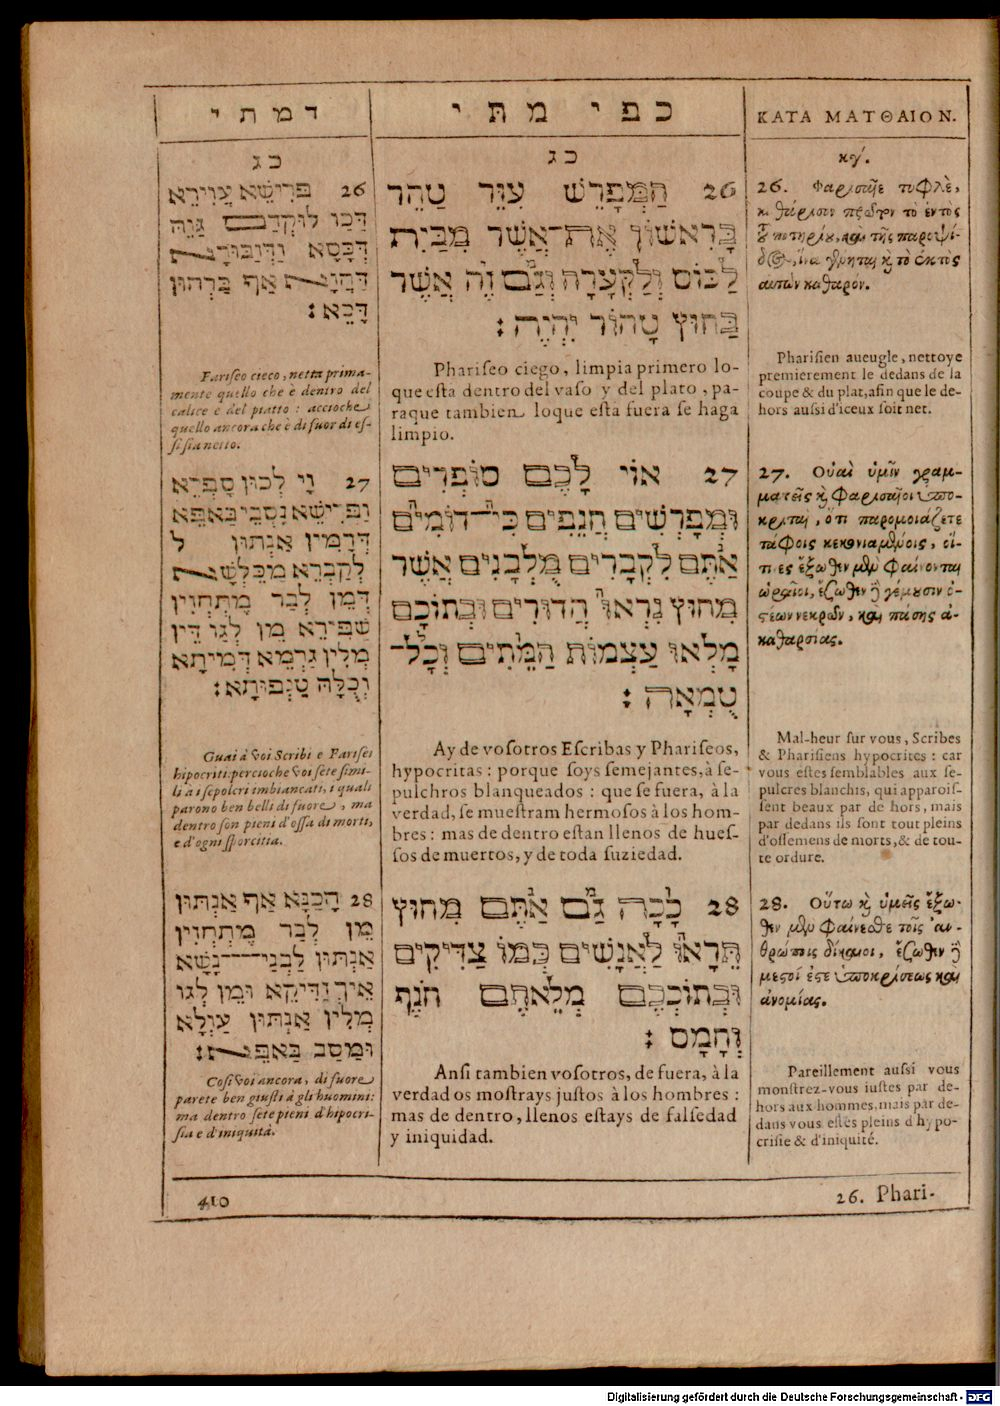 דמתי
כג
26 פְּרִישֵׁא עֲוִירֵא
דַּכַו לוּקְדַם גַּוֵּהּ
דְּכָסָא וַדְזַבּוּרָא
דְּהָוֵא אַף בַּרְהוּן
דְּכֵא׃
Fariseo cieco, netta prima-
mente quello che è dentro del
calice e del piatto : accioche
quello ancora che è di fuor di es-
si sia netto.
27 וָי לְכוּן סָפְרֵא
וַפְּרִישֵׁא נָסְבֵי בַּאפֵּא
דְּדָמִין אַנְתּוּן ל
לְקַבְרֵא מְכַלְּשֵׁא
דְּמֵן לְבַר מֶתְחְזִין
שַׁפִּירֵא מֵן לְגוּ דֵּין
מְלִין גַּרְמֵא דְּמִיתָא
וְכֻלָּהּ טַנְפוּתָא׃
Guai à voi Scribi e Farisei
hipocriti: percioche voi sete simi-
li a i sepolcri imbiancati, i quali
parono ben belli di fuore, ma
dentro son pieni d'ossa di morti,
e d'ogni sporcitia.
28 הָכַנָּא אַף אַנְתּוּן
מֵן לְבַר מֶתְחְזִין
אַנְתּוּן לַבְנַי־נָשָׁא
אֵיךְ זַדִּיקֵא וּמֵן לְגוּ
מְלִין אַנְתּוּן עַוְלָא
וּמַסַּב בַּאפֵּא׃
Cosi voi ancora, di fuore
parete ben giusti à gli huomini:
ma dentro sete pieni d'hipocri-
sia e d'iniquità.
כפי מתי
כג
26 הַמְּפָרֵשׁ עִוֵּר טַהֵר
בָּרִאשׁוֹן אֶת־אֲשֶׁר מִבַּיִת
לַכּוֹס וְלַקְּעָרָה וְגַם זֶה אֲשֶׁר
בַּחוּץ טָהוֹר יִהְיֶה׃
Phariseo ciego, limpia primero lo-
que esta dentro del vaso y del plato, pa-
raque tambien loque esta fuera se haga
limpio.
27 אוֹי לָכֶם סוֹפְרִים
וּמְפָרְשִׁים חֲנֵפִים כִּי־דוֹמִים
אַתֶּם לִקְבָרִים מְלֻבָּנִים אֲשֶׁר
מִחוּץ נִרְאוּ הֲדוּרִים וּבְתוֹכָם
מָלְאוּ עַצְמוֹת הַמֵּתִים וְכָל־
טֻמְאָה׃
Ay de vosotros Escribas y Phariseos,
hypocritas : porque soys semejantes, à se-
pulchros blanqueados : que se fuera, à la
verdad, se muestram hermosos à los hom-
bres : mas de dentro estan llenos de hues-
sos de muertos, y de toda suziedad.
28 לָכָה גַּם אַתֶּם מִחוּץ
תֵּרָאוּ לַאֲנָשִׁים כְּמוֹ צַדִּיקִים
וּבְתוֹכְכֶם מְלֵאתֶם חֹנֶף
וְחָמָס׃
Ansi tambien vosotros, de fuera, à la
verdad os mostrays justos à los hombres :
mas de dentro, llenos estays de falsedad
y iniquidad.
ΚΑΤΑ ΜΑΤΘΑΙΟΝ.
κγ΄.
26. Φαρισαῖε τυφλὲ,
καθάρισον πρῶτον τὸ ἐντὸς
τοῦ ποτηρίου, καὶ τῆς παροψί-
δος, ἵνα γένηται καὶ τὸ ἐκτὸς
αὐτῶν καθαρόν.
Pharisien aueugle, nettoye
premierement le dedans de la
coupe & du plat, afin que le de-
hors aussi d'iceux soit net.
27. Οὐαὶ ὑμῖν γραμ-
ματεῖς καὶ Φαρισαῖοι ὑπο-
κριταὶ, ὅτι παρομοιάζετε
τάφοις κεκονιαμένοις, οἵ-
τινες ἔξωθεν μὲν φαίνονται
ὡραῖοι, ἔσωθεν δὲ γέμουσιν ὀ-
στέων νεκρῶν, καὶ πάσης ἀ-
καθαρσίας.
Mal-heur sur vous, Scribes
& Pharisiens hypocrites : car
vous estes semblables aux se-
pulcres blanchis, qui apparois-
sent beaux par de hors, mais
par dedans ils sont tout pleins
d'ossemens de morts, & de tou-
te ordure.
28. Οὕτω καὶ ὑμεῖς ἔξω-
θεν μὲν φαίνεσθε τοῖς ἀν-
θρώποις δίκαιοι, ἔσωθεν δὲ
μεστοί ἐστε ὑποκρίσεως καὶ
ἀνομίας.
Pareillement aussi vous
monstrez-vous iustes par de-
hors aux hommes, mais par de-
dans vous estes pleins d'hypo-
crisie & d'iniquité.
410
26. Phari-
Digitalisierung gefördert durch die Deutsche Forschungsgemeinschaft - DFG